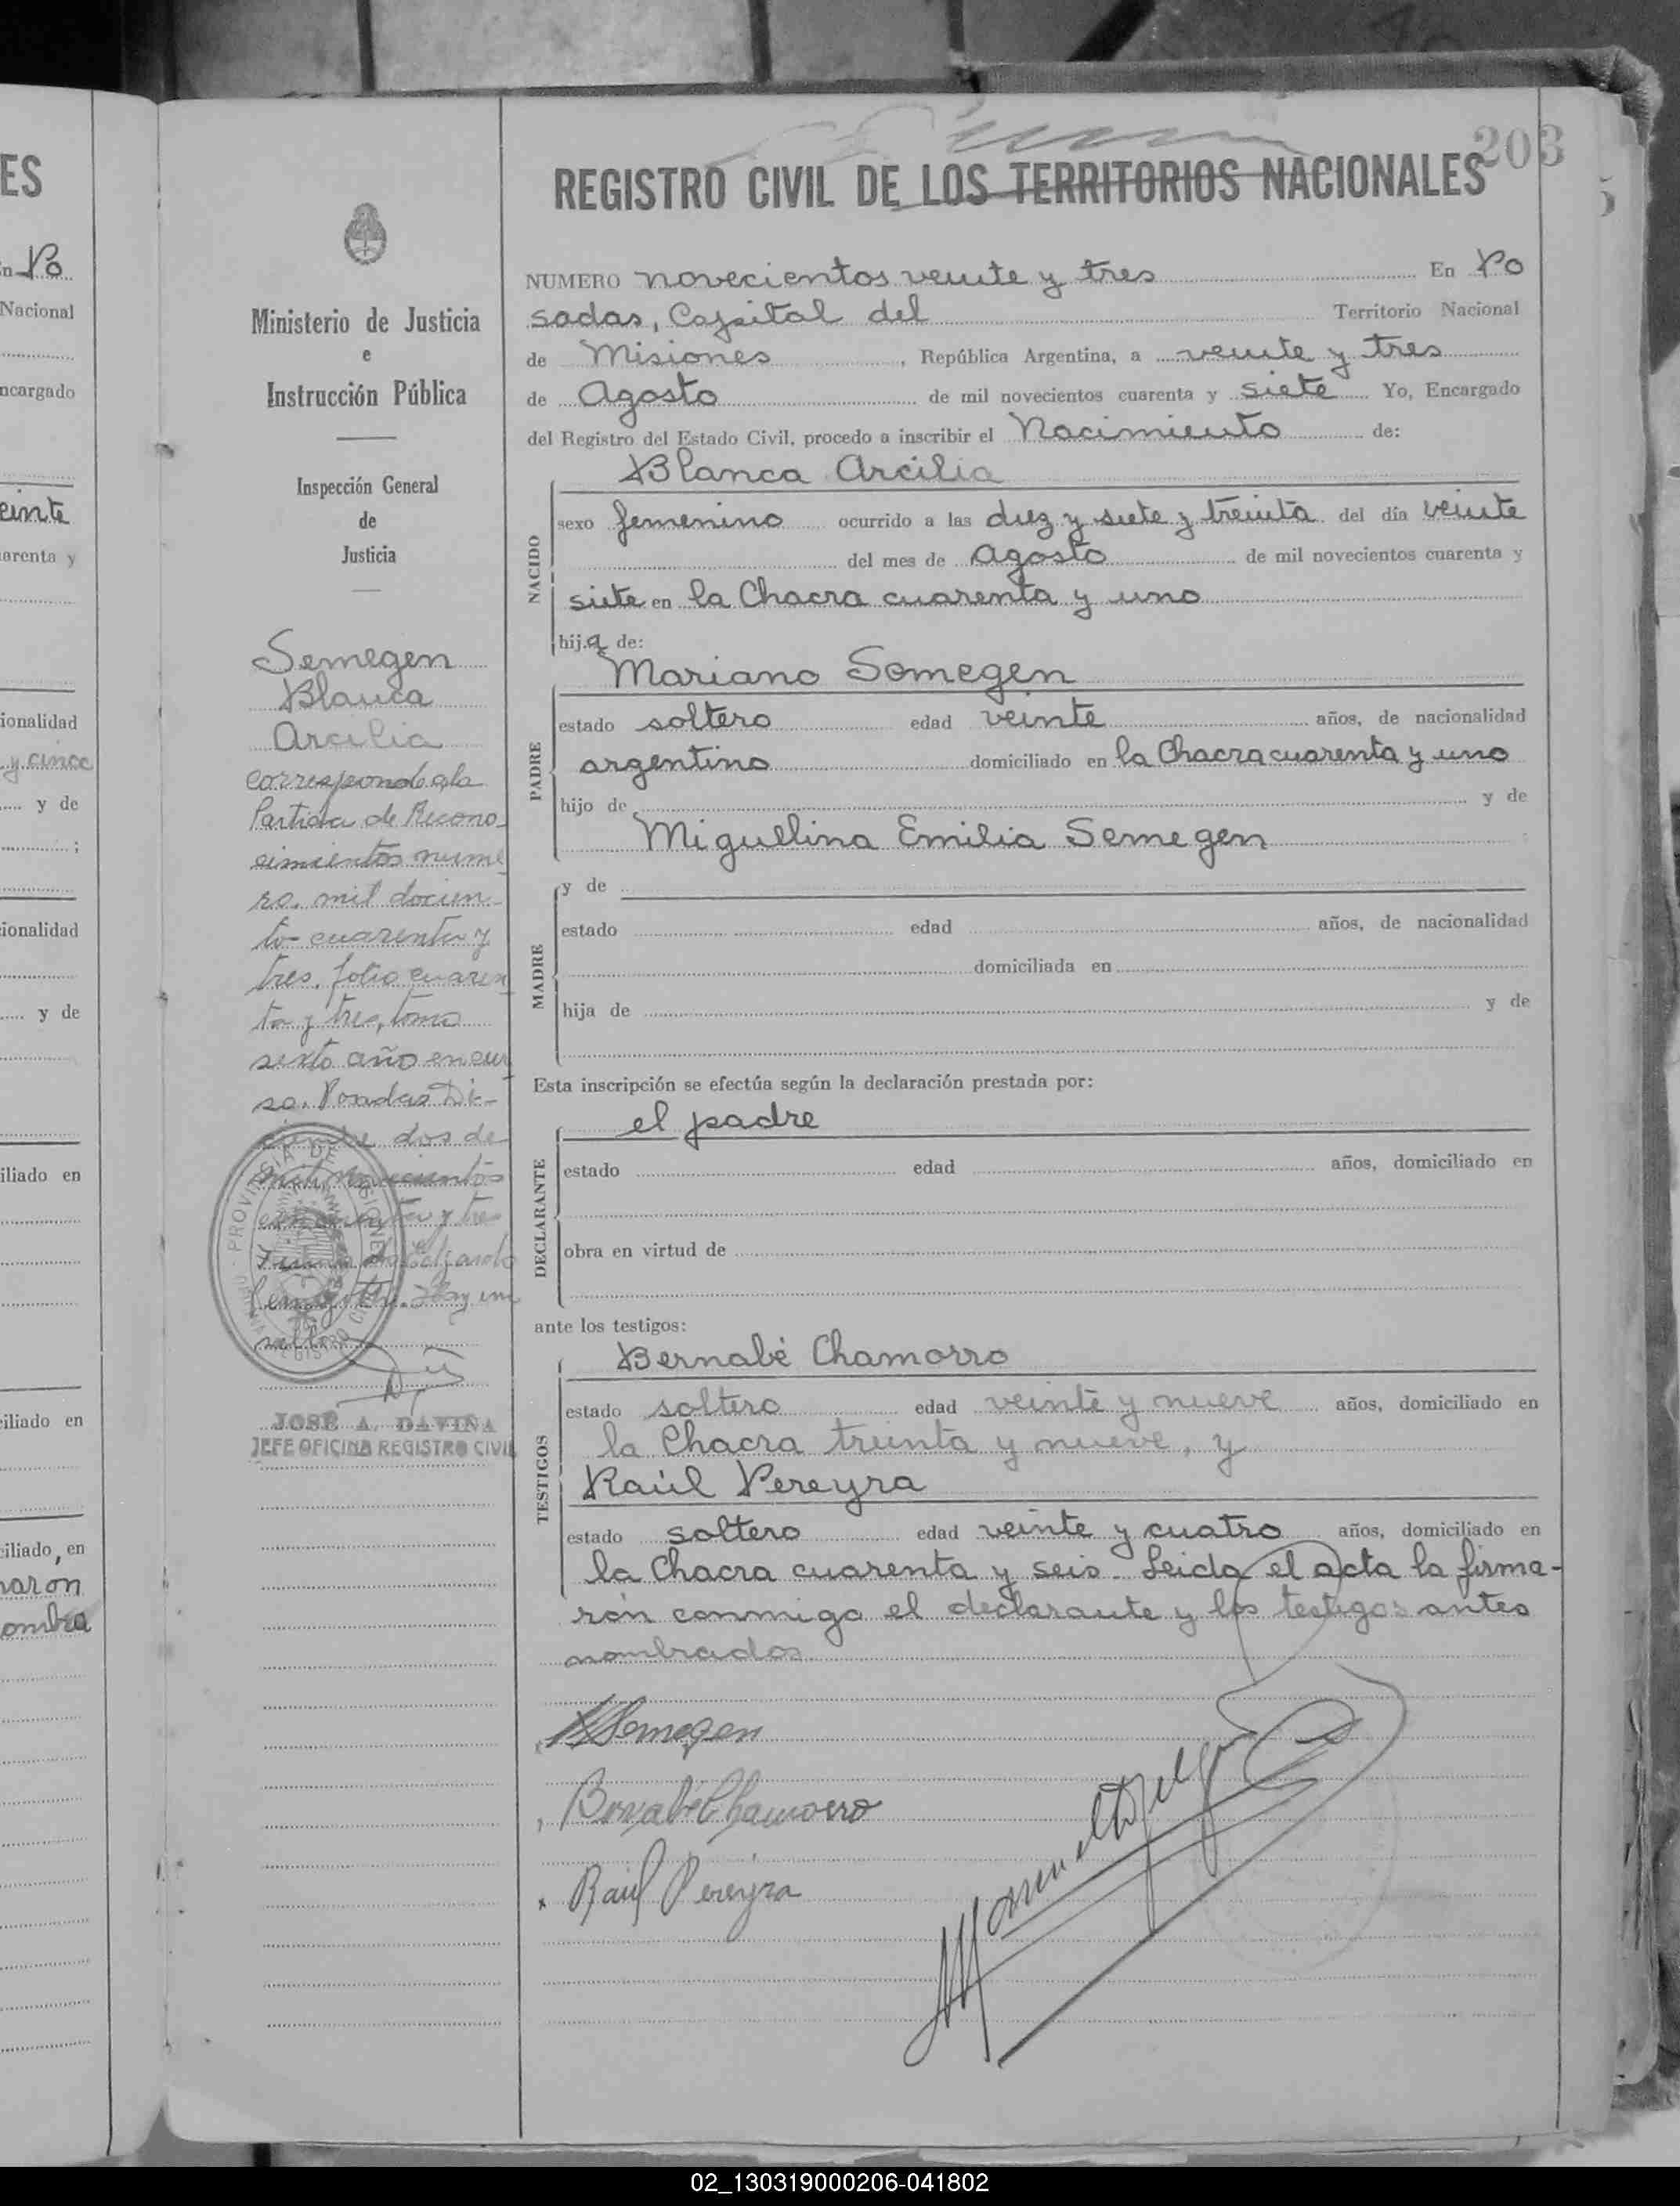 203
REGISTRO CIVIL DE LOS TERRITORIOS NACIONALES
NUMERO novecientos veinte y tres En Po
sadas, Capital del Territorio Nacional
de Misiones, República Argentina, a veinte y tres
de Agosto de mil novecientos cuarenta y siete Yo, Encargado
del Registro del Estado Civil, procedo a inscribir el Nacimiento de:
NACIDO
Blanca Arcilia
sexo femenino ocurrido a las diez y siete y treinta del día veinte
del mes de agosto de mil novecientos cuarenta y
siete en la Chacra cuarenta y uno
hija de:
PADRE
Mariano Somegen
estado soltero edad veinte años, de nacionalidad
argentino domiciliado en la Chacra cuarenta y uno
hijo de y de
Miguelina Emilia Semegen
MADRE
y de
estado edad años, de nacionalidad
domiciliada en
hija de y de
Esta inscripción se efectúa según la declaración prestada por:
DECLARANTE
el padre
estado edad años, domiciliado en
obra en virtud de
ante los testigos:
TESTIGOS
Bernabé Chamorro
estado soltero edad veinte y nueve años, domiciliado en
la Chacra treinta y nueve, y
Raúl Pereyra
estado soltero edad veinte y cuatro años, domiciliado en
la Chacra cuarenta y seis. Leida el acta la firma-
ron conmigo el declarante y los testigos antes
nombrados.
Semegen
Bernabé Chamorro
Raúl Pereyra
Ministerio de Justicia
e
Instrucción Pública
Inspección General
de
Justicia
Semegen
Blanca
Arcilia
corresponde a la
Partida de Recono-
cimientos nume
ro. mil docien-
to cuarenta y
tres, folio cuaren
ta y tres, tomo
sexto año en cur
so. Posadas Di-
ciembre dos de
mil novecientos
cincuenta y tres
Hay un
sello
PROVINCIA DE MISIONES
JOSÉ A. DAVIÑA
JEFE OFICINA REGISTRO CIVIL
ES
En Po
Nacional
Encargado
veinte
cuarenta y
nacionalidad
y cinco
y de
;
nacionalidad
y de
domiciliado en
domiciliado en
domiciliado, en
maron
ombra
02_130319000206-041802